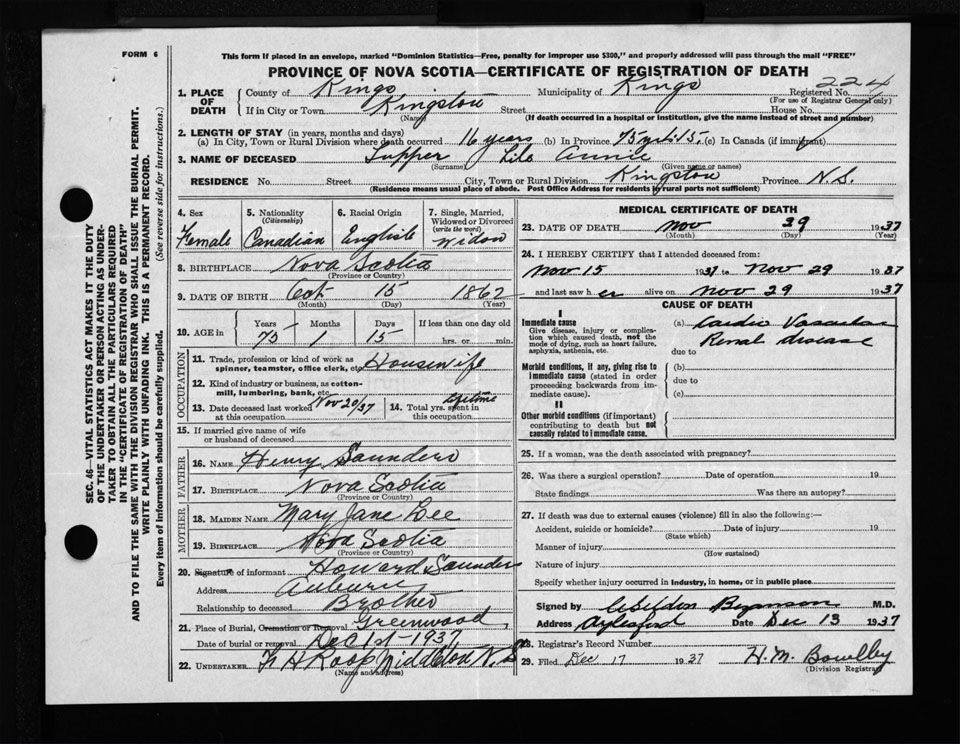 FORM 6
This form if placed in an envelope, marked "Dominion Statistics—Free, penalty for improper use $300," and properly addressed will pass through the mail "FREE"
PROVINCE OF NOVA SCOTIA—CERTIFICATE OF REGISTRATION OF DEATH
1. PLACE OF DEATH
County of Kings Municipality of Kings Registered No. 224
(For use of Registrar General only)
If in City or Town Kingston Street House No.
(Name) (If death occurred in a hospital or institution, give the name instead of street and number)
2. LENGTH OF STAY (in years, months and days)
(a) In City, Town or Rural Division where death occurred 16 years (b) In Province (c) In Canada (if immigrant)
3. NAME OF DECEASED Annie
(Surname) (Given name or names)
RESIDENCE No. Street City, Town or Rural Division Kingston Province N.S.
(Residence means usual place of abode. Post Office Address for residents in rural parts not sufficient)
SEC. 46—VITAL STATISTICS ACT MAKES IT THE DUTY
OF THE UNDERTAKER OR PERSON ACTING AS UNDER-
TAKER TO OBTAIN ALL THE PARTICULARS REQUIRED
IN THE "CERTIFICATE OF REGISTRATION OF DEATH"
AND TO FILE THE SAME WITH THE DIVISION REGISTRAR WHO SHALL ISSUE THE BURIAL PERMIT.
WRITE PLAINLY WITH UNFADING INK. THIS IS A PERMANENT RECORD.
Every item of Information should be carefully supplied. (See reverse side for instructions.)
4. Sex
Female
5. Nationality
(Citizenship)
Canadian
6. Racial Origin
English
7. Single, Married,
Widowed or Divorced
(write the word)
Widow
8. BIRTHPLACE Nova Scotia
(Province or Country)
9. DATE OF BIRTH Oct 15 1862
(Month) (Day) (Year)
10. AGE in
Years Months Days If less than one day old
75 1 15 hrs. or min.
OCCUPATION
11. Trade, profession or kind of work as
spinner, teamster, office clerk, etc. Housewife
12. Kind of industry or business, as cotton-
mill, lumbering, bank, etc.
13. Date deceased last worked
at this occupation Nov 20/37
14. Total yrs. spent in
this occupation lifetime
15. If married give name of wife
or husband of deceased
FATHER
16. NAME Henry Saunders
17. BIRTHPLACE Nova Scotia
(Province or Country)
MOTHER
18. MAIDEN NAME Mary Jane Lee
19. BIRTHPLACE Nova Scotia
(Province or Country)
20. Signature of informant Howard Saunders
Address Auburn
Relationship to deceased Brother
21. Place of Burial, Cremation or Removal Greenwood
Date of burial or removal Dec 1st 1937
22. UNDERTAKER Roop Middleton N.S.
(Name and address)
MEDICAL CERTIFICATE OF DEATH
23. DATE OF DEATH Nov 29 1937
(Month) (Day) (Year)
24. I HEREBY CERTIFY that I attended deceased from:
Nov 15 1937 to Nov 29 1937
and last saw her alive on Nov 29 1937
CAUSE OF DEATH
I
Immediate cause
Give disease, injury or complica-
tion which caused death, not the
mode of dying, such as heart failure,
asphyxia, asthenia, etc.
(a) Cardio Vascular
Renal disease
due to
Morbid conditions, if any, giving rise to
immediate cause (stated in order
proceeding backwards from im-
mediate cause).
(b)
due to
(c)
II
Other morbid conditions (if important)
contributing to death but not
causally related to immediate cause.
25. If a woman, was the death associated with pregnancy?
26. Was there a surgical operation? Date of operation 19
State findings Was there an autopsy?
27. If death was due to external causes (violence) fill in also the following:—
Accident, suicide or homicide? Date of injury 19
(State which)
Manner of injury
(How sustained)
Nature of injury
Specify whether injury occurred in industry, in home, or in public place
Signed by M.D.
Address Aylesford Date Dec 13 1937
28. Registrar's Record Number
29. Filed Dec 17 1937 H. M. Bowlby
(Division Registrar)